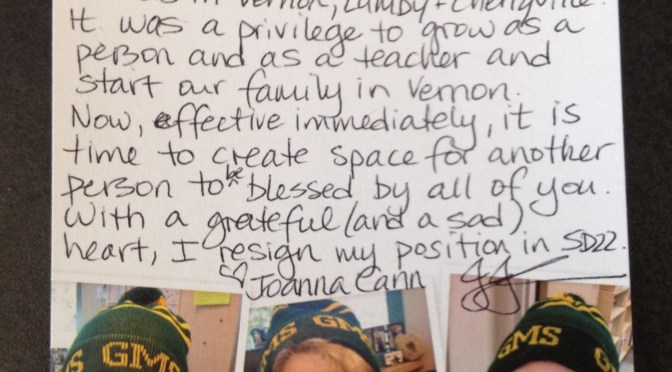 in Vernon, Lumby + Cherryville.
It was a privilege to grow as a
person and as a teacher and
start our family in Vernon.
Now, effective immediately, it is
time to create space for another
person to be blessed by all of you.
With a grateful (and a sad)
heart, I resign my position in SD22.
♡ Joanna Cann
S GMS
MS GMS
GMS G